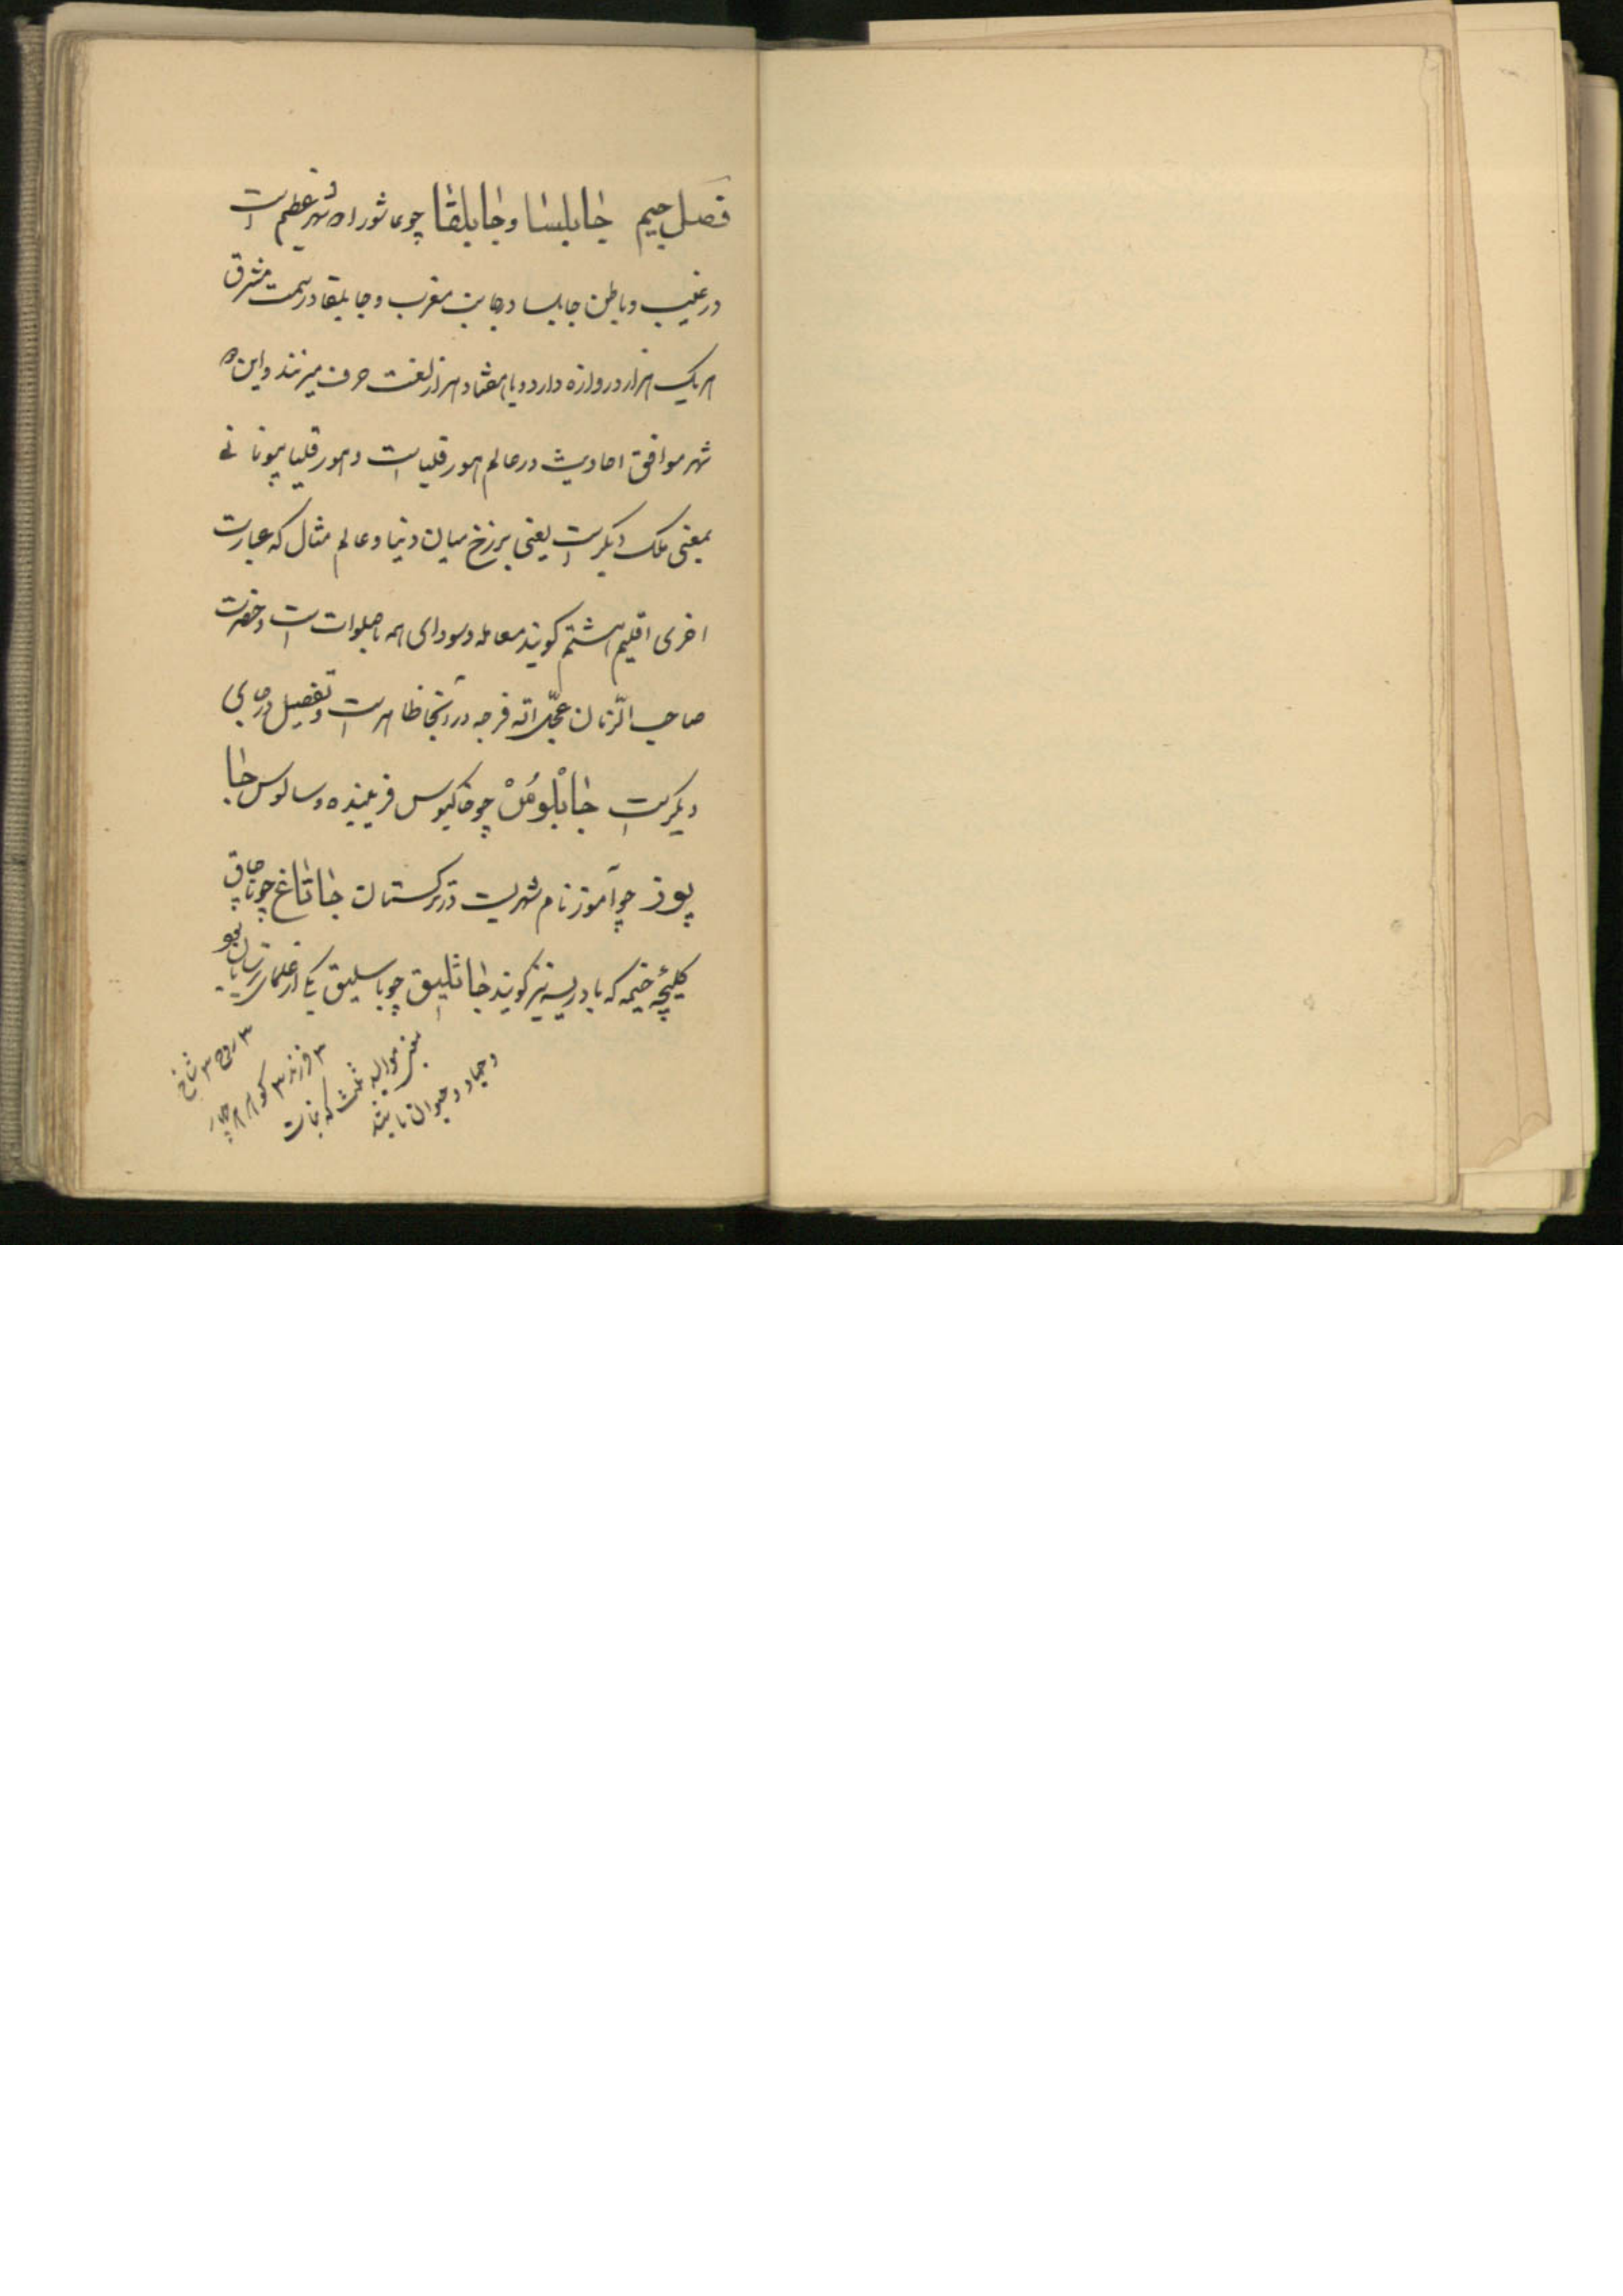 فصل جیم جابلسا و جابلقا چو عاشورا دو شهر عظیم است
در غیب و باطن جابلسا در جانب مغرب و جابلقا در سمت مشرق
هر یک هزار دروازه دارد و با هفتاد هزار لغت حرف میزنند و این دو
شهر موافق احادیث در عالم هورقلیا است و هورقلیا بیونانی
بمعنی ملک دیگر است یعنی برزخ میان دنیا و عالم مثال که عبارت
اخری اقلیم هشتم گویند معامله و سودای همه با صلوات است و حضرت
صاحب الزمان عجّل الله فرجه در آنجا ظاهر است و تفصیل در جای
دیگر است جابْلوسْ چو خاکبوس فریبنده و سالوس جا
پوز چو آموز نام شهریست در ترکستان جاتاغ چو ناچاق
کلیچه خیمه که بادریسه نیز گویند جاثلیق چو باسلیق یکی از علمای
۳ روح ۳ شاخ
۳ فرزند ۳
یعنی موالید ثلث که نبات
و جماد و حیوان باشد